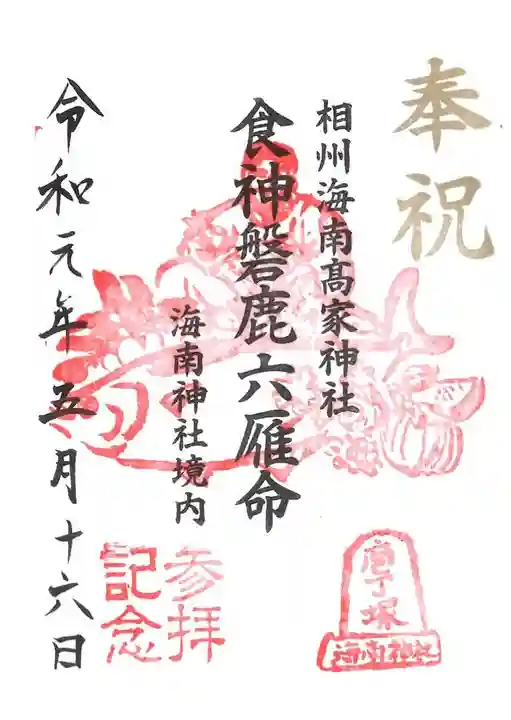 奉祝
相州海南髙家神社
食神磐鹿六雁命
海南神社境内
令和元年五月十六日
参拝
記念
庖丁塚
海南神社